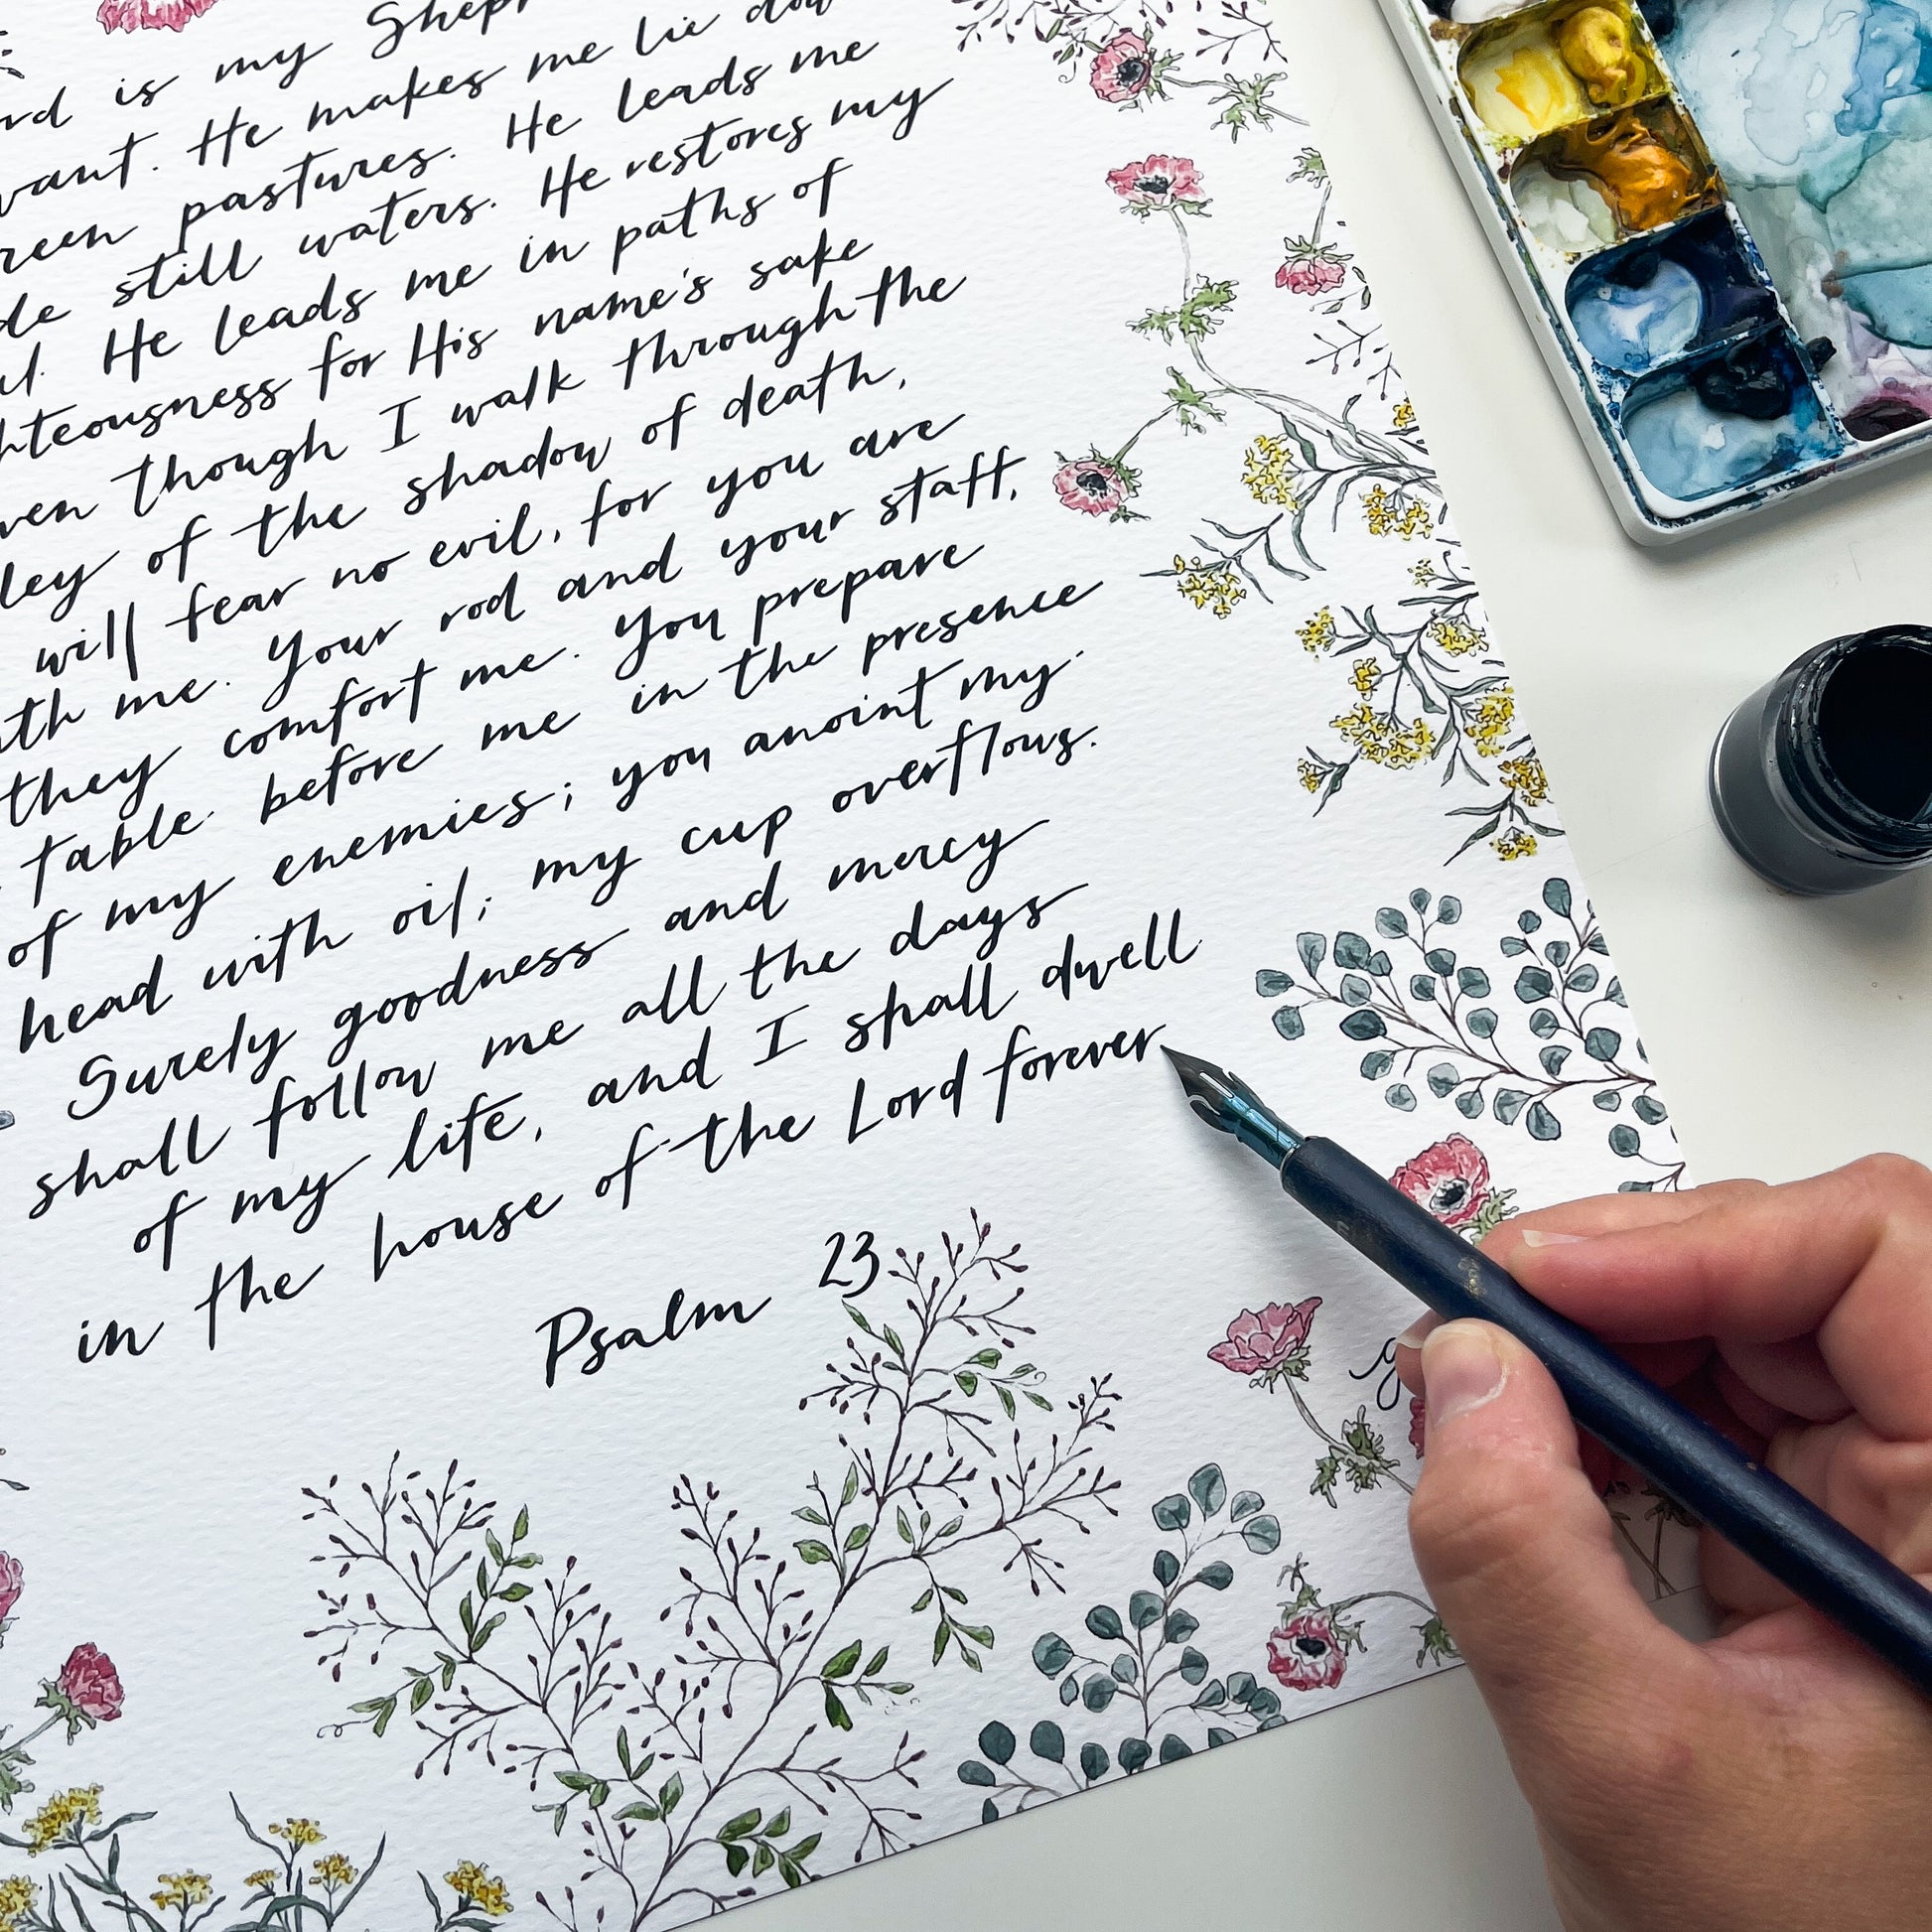 rd is my Shep
want. He makes me lie dow
reen pastures. He leads me
de still waters. He restores my
ul. He leads me in paths of
hteousness for His name's sake
ven though I walk through the
ley of the shadow of death,
will fear no evil, for you are
ith me. Your rod and your staff,
they comfort me. You prepare
table before me in the presence
of my enemies; you anoint my
head with oil; my cup overflows.
Surely goodness and mercy
shall follow me all the days
of my life, and I shall dwell
in the house of the Lord forever
Psalm 23
g